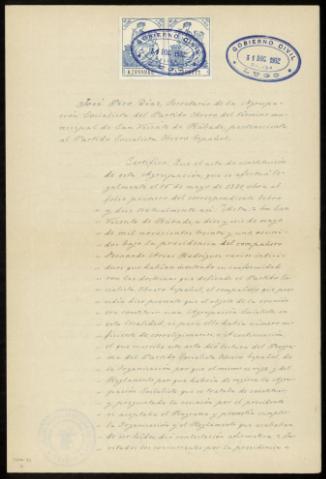 GOBIERNO CIVIL
31 DIC. 1932
LUGO
José Pico Díaz, Secretario de la Agrupa-
ción Socialista del Partido Obrero del término mu-
nicipal de San Vicente de Rábade, perteneciente
al Partido Socialista Obrero Español.
Certifico: Que el acta de constitución
de esta Agrupación que se efectuó le-
galmente el 16 de mayo de obra al
folio primero del correspondiente libro
y dice textualmente así: En San
Vicente de Rábade, a diez y seis de mayo
de mil novecientos treinta y uno reuni-
dos bajo la presidencia del compañero
Rodríguez varios indivi-
duos que habían en conformidad
con las doctrinas que defiende el Partido So-
cialista Obrero Español, el compañero que pre-
sidía hizo presente que el objeto de la reunión
era constituir una Agrupación Socialista en
esta localidad, si para ello había número su-
ficiente de correligionarios. A continuación
el que suscribe esta acta dió lectura del Progra-
ma del Partido Socialista Obrero Español, de
la Organización por que el mismo se rige y del
Reglamento por que habría de regirse la Agru-
pación Socialista que se trataba de constituir
y preguntada la reunión por el presidente
si aceptaba el Programa y prometía cumplir
la Organización y el Reglamento que acababan
de ser leídos, dió contestación afirmativa. 
 los concurrentes por la presidencia a